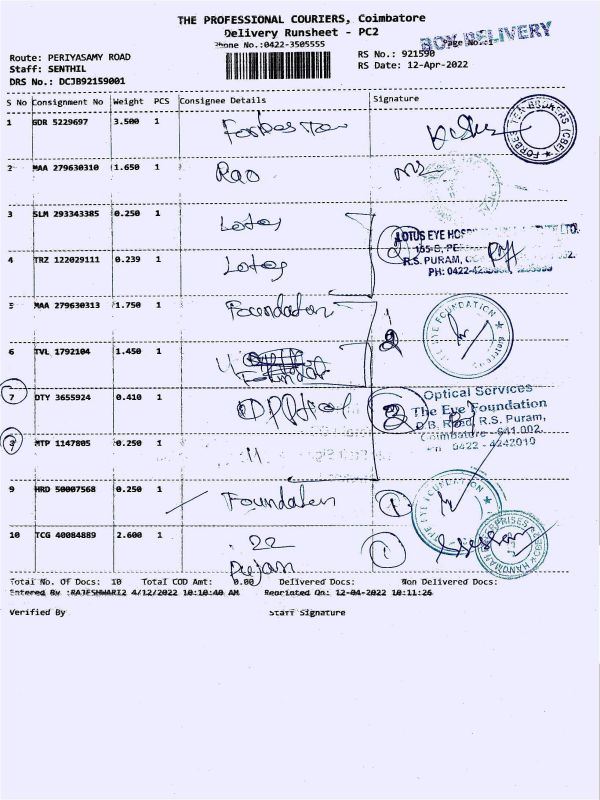 THE PROFESSIONAL COURIERS, Coimbatore
Delivery Runsheet - PC2
BOX DELIVERY
Phone No.:0422-3505555
Page No.:1
Route: PERIYASAMY ROAD
RS No.: 921590
Staff: SENTHIL
RS Date: 12-Apr-2022
DRS No.: DCJB92159001
S No Consignment No Weight PCS Consignee Details Signature
1 GDR 5229697 3.500 1 Forbes Tea
FORBES TEA BROKERS (CBE)
2 MAA 279630310 1.650 1 Rao
3 SLM 293343385 0.250 1 Lotus
LOTUS EYE HOSPITAL LTD.
R.S. PURAM,
PH: 0422-
4 TRZ 122029111 0.239 1 Lotus
5 MAA 279630313 1.750 1 Foundation
THE EYE FOUNDATION
6 TVL 1792104 1.450 1 Foundation
7 DTY 3655924 0.410 1 Optical
2
Optical Services
The Eye Foundation
D.B. Road, R.S. Puram,
Coimbatore - 641 002.
Ph 0422 - 4242010
8 MTP 1147805 0.250 1 11
9 HRD 50007568 0.250 1 Foundation
1
THE EYE FOUNDATION
10 TCG 40084889 2.600 1 22
1
Total No. Of Docs: 10 Total COD Amt: 0.00 Delivered Docs: Non Delivered Docs:
Entered By :RAJESHWARI2 4/12/2022 10:10:40 AM Reprinted On: 12-04-2022 10:11:26
Verified By Staff Signature